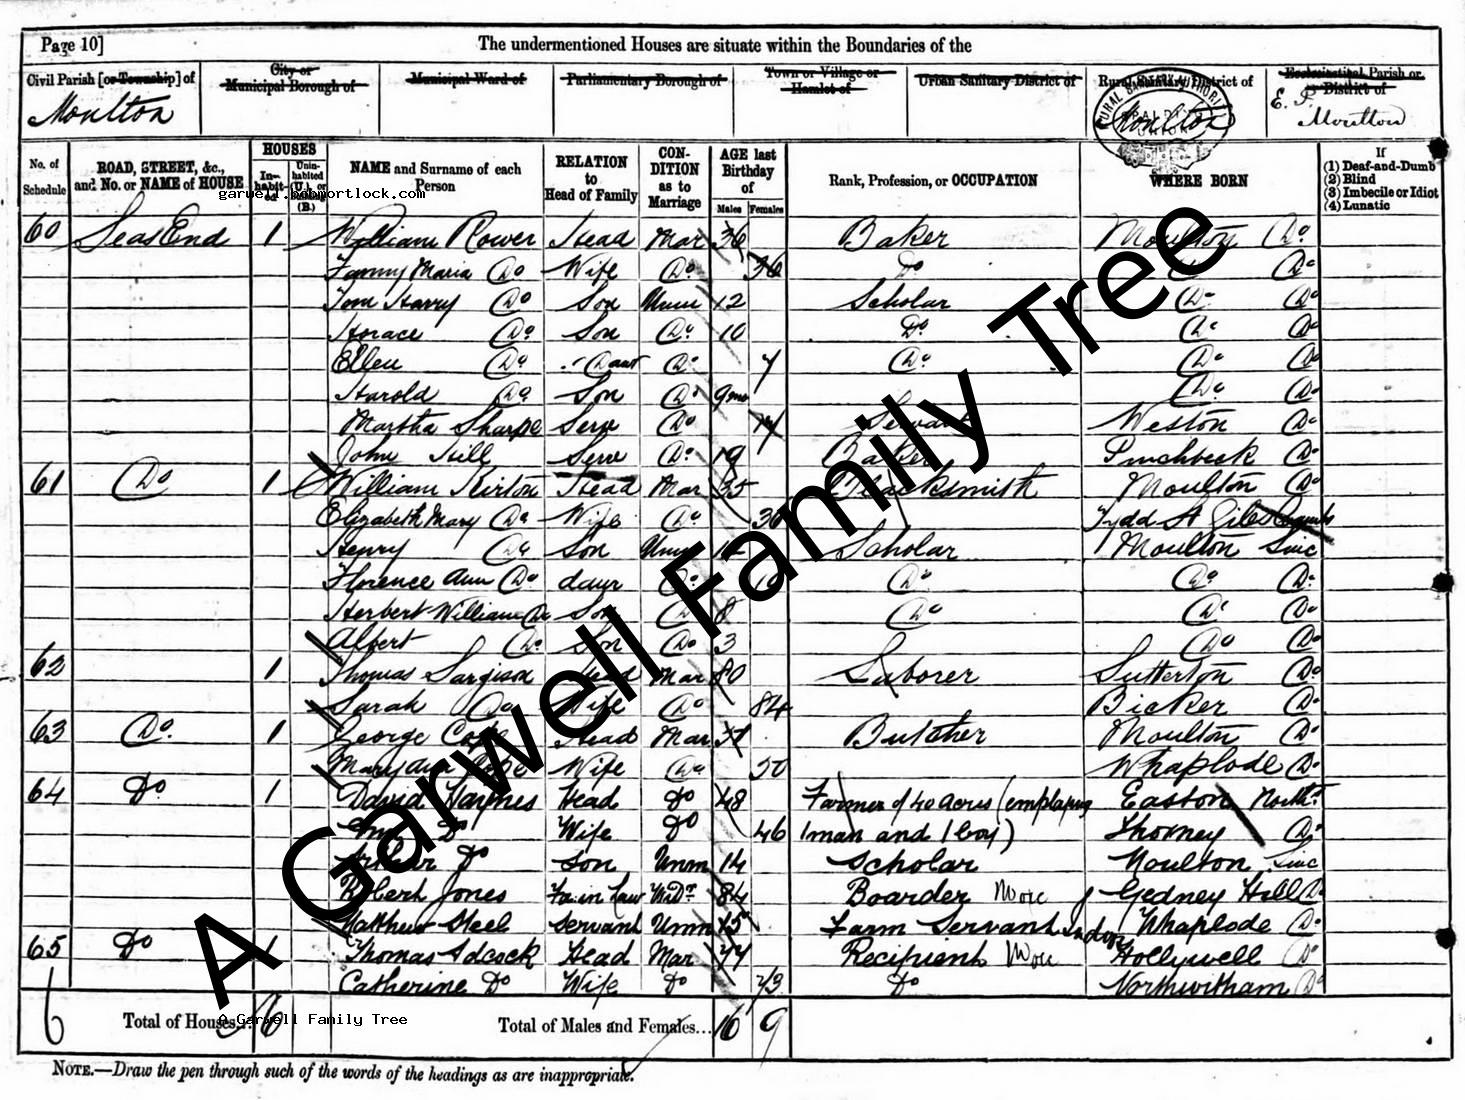 Page 10]
The undermentioned Houses are situate within the Boundaries of the
Civil Parish [or Township] of
City or Municipal Borough of
Municipal Ward of
Parliamentary Borough of
Town or Village or Hamlet of
Urban Sanitary District of
Rural Sanitary District of
Ecclesiastical Parish or District of
Moulton
Moulton
E. P. Moulton
No. of Schedule
ROAD, STREET, &c., and No. or NAME of HOUSE
HOUSES
In-habit-ed
Unin-habited (U.), or Building (B.)
NAME and Surname of each Person
RELATION to Head of Family
CON-DITION as to Marriage
AGE last Birthday of
Males Females
Rank, Profession, or OCCUPATION
WHERE BORN
If
(1) Deaf-and-Dumb
(2) Blind
(3) Imbecile or Idiot
(4) Lunatic
garwell.bobmortlock.com
60 Seas End 1 William Rower Head Mar 36 Baker Moulton Do
Fanny Maria Do Wife Do 36 Do Do Do
Tom Harry Do Son Unm 12 Scholar Do Do
Horace Do Son Do 10 Do Do Do
Ellen Do Daur Do 7 Do Do Do
Harold Do Son Do 9mo Do Do
Martha Sharpe Serv Do 14 Servant Weston Do
John Hill Serv Do 19 Baker Pinchbeck Do
61 Do 1 William Kirton Head Mar 35 Blacksmith Moulton Do
Elizabeth Mary Do Wife Do 36 Tydd St Giles
Henry Do Son Unm Scholar Moulton Linc
Florence Ann Do daur Do 10 Do Do Do
Herbert William Do Son Do 8 Do Do Do
Albert Do Son Do 3 Do Do
62 1 Thomas Sargison Head Mar 80 Laborer Sutterton Do
Sarah Do Wife Do 84 Bicker Do
63 Do 1 George Cope Head Mar 37 Butcher Moulton Do
Mary Ann Cope Wife Do 50 Whaplode Do
64 Do 1 David Haynes Head Do 48 Farmer of 40 acres (employing Easton North
Do Wife Do 46 1 man and 1 boy) Thorney Do
Arthur Do Son Unm 14 Scholar Moulton Linc
Robert Jones Fa in Law Widr 84 Boarder Gedney Hill Do
Matthew Steel Servant Unm 15 Farm Servant Indoor Whaplode Do
65 Do 1 Thomas Adcock Head Mar 77 Recipient Hollywell Do
Catherine Do Wife Do 73 Do Northwitham Do
6 Total of Houses... 6 Total of Males and Females... 16 9
A Garwell Family Tree
NOTE.—Draw the pen through such of the words of the headings as are inappropriate.
A Garwell Family Tree